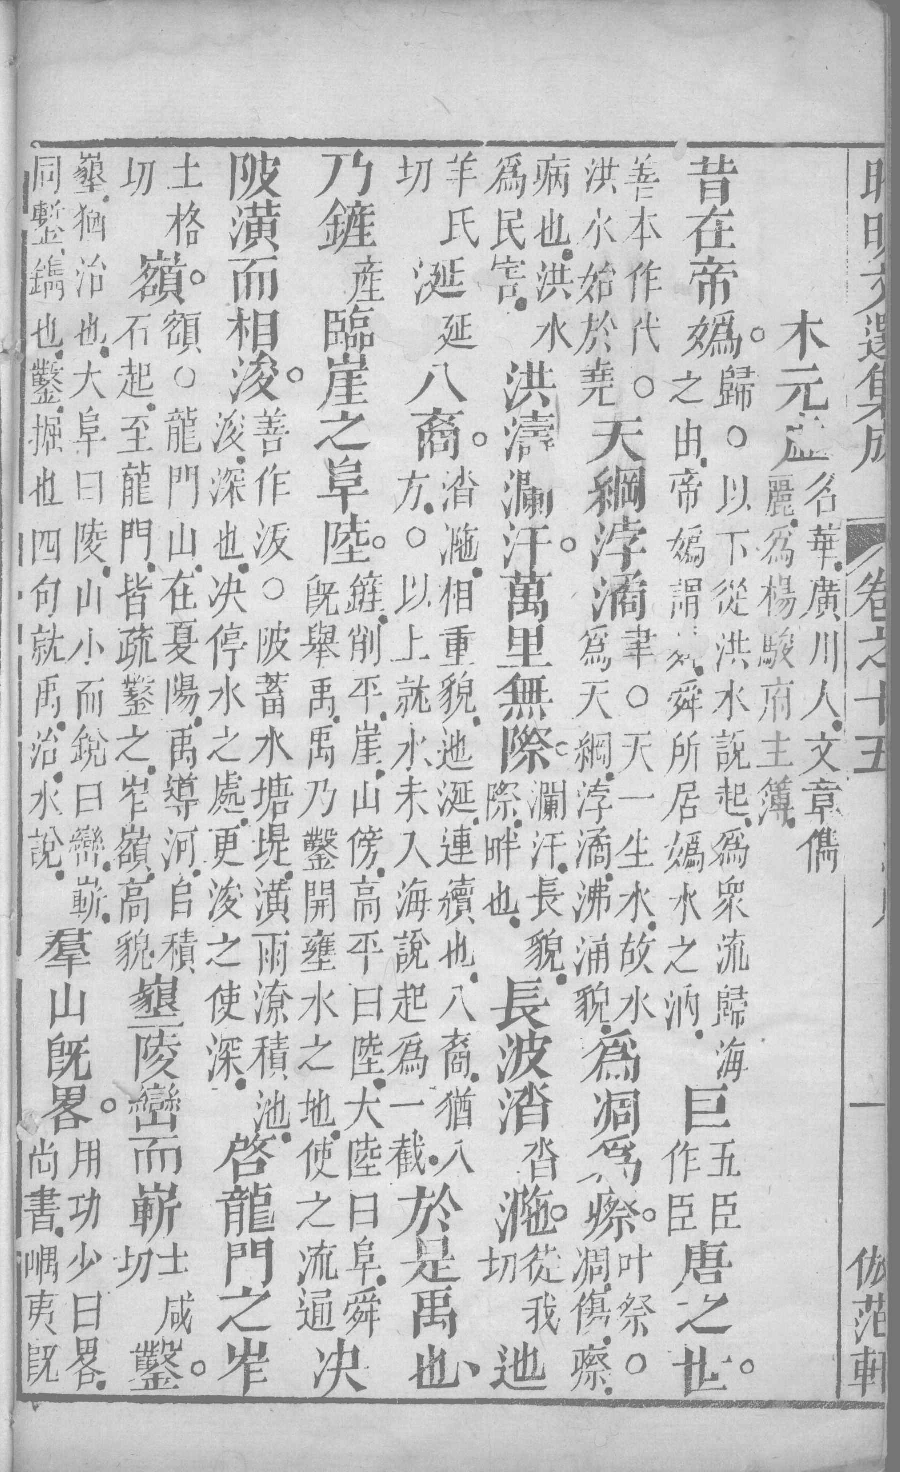 昭明文選集成 卷之十五 一 倣范軒
木元虛 名華廣川人文章儁麗為楊駿府主簿
昔在帝嬀。歸○以下從洪水說起為眾流歸海之由帝嬀謂舜所居嬀水之汭 巨 五臣作臣 唐之世。
善本作代○洪水始於堯 天綱浡潏 聿○天一生水故水為天綱浡潏沸涌貌 為凋為瘵。叶祭○凋傷瘵
病也洪水為民害 洪濤瀾汗。萬里無際。瀾汗長貌際畔也 長波涾 沓 㴰。從我切 迆
羊氏切 涎 延 八裔。涾㴰相重貌迆涎連續也八裔猶八方○以上就水未入海說起為一截 於是禹也
乃鏟 產 臨崖之阜陸。鏟削平崖山傍高平曰陸大陸曰阜舜既舉禹禹乃鑿開壅水之地使之流通 决
陂潢而相浚。善作沷○陂蓄水塘堤潢雨潦積池浚深也决停水之處更浚之使深 啓龍門之岝
土格切 嶺。額○龍門山在夏陽禹導河自積石起至龍門皆疏鑿之岝嶺高貌 墾陵巒而嶄 士咸切 鑿。
墾猶治也大阜曰陵山小而銳曰巒嶄同鏨鐫也鑿掘也四句就禹治水說 羣山既畧。用功少曰畧尚書嵎夷既